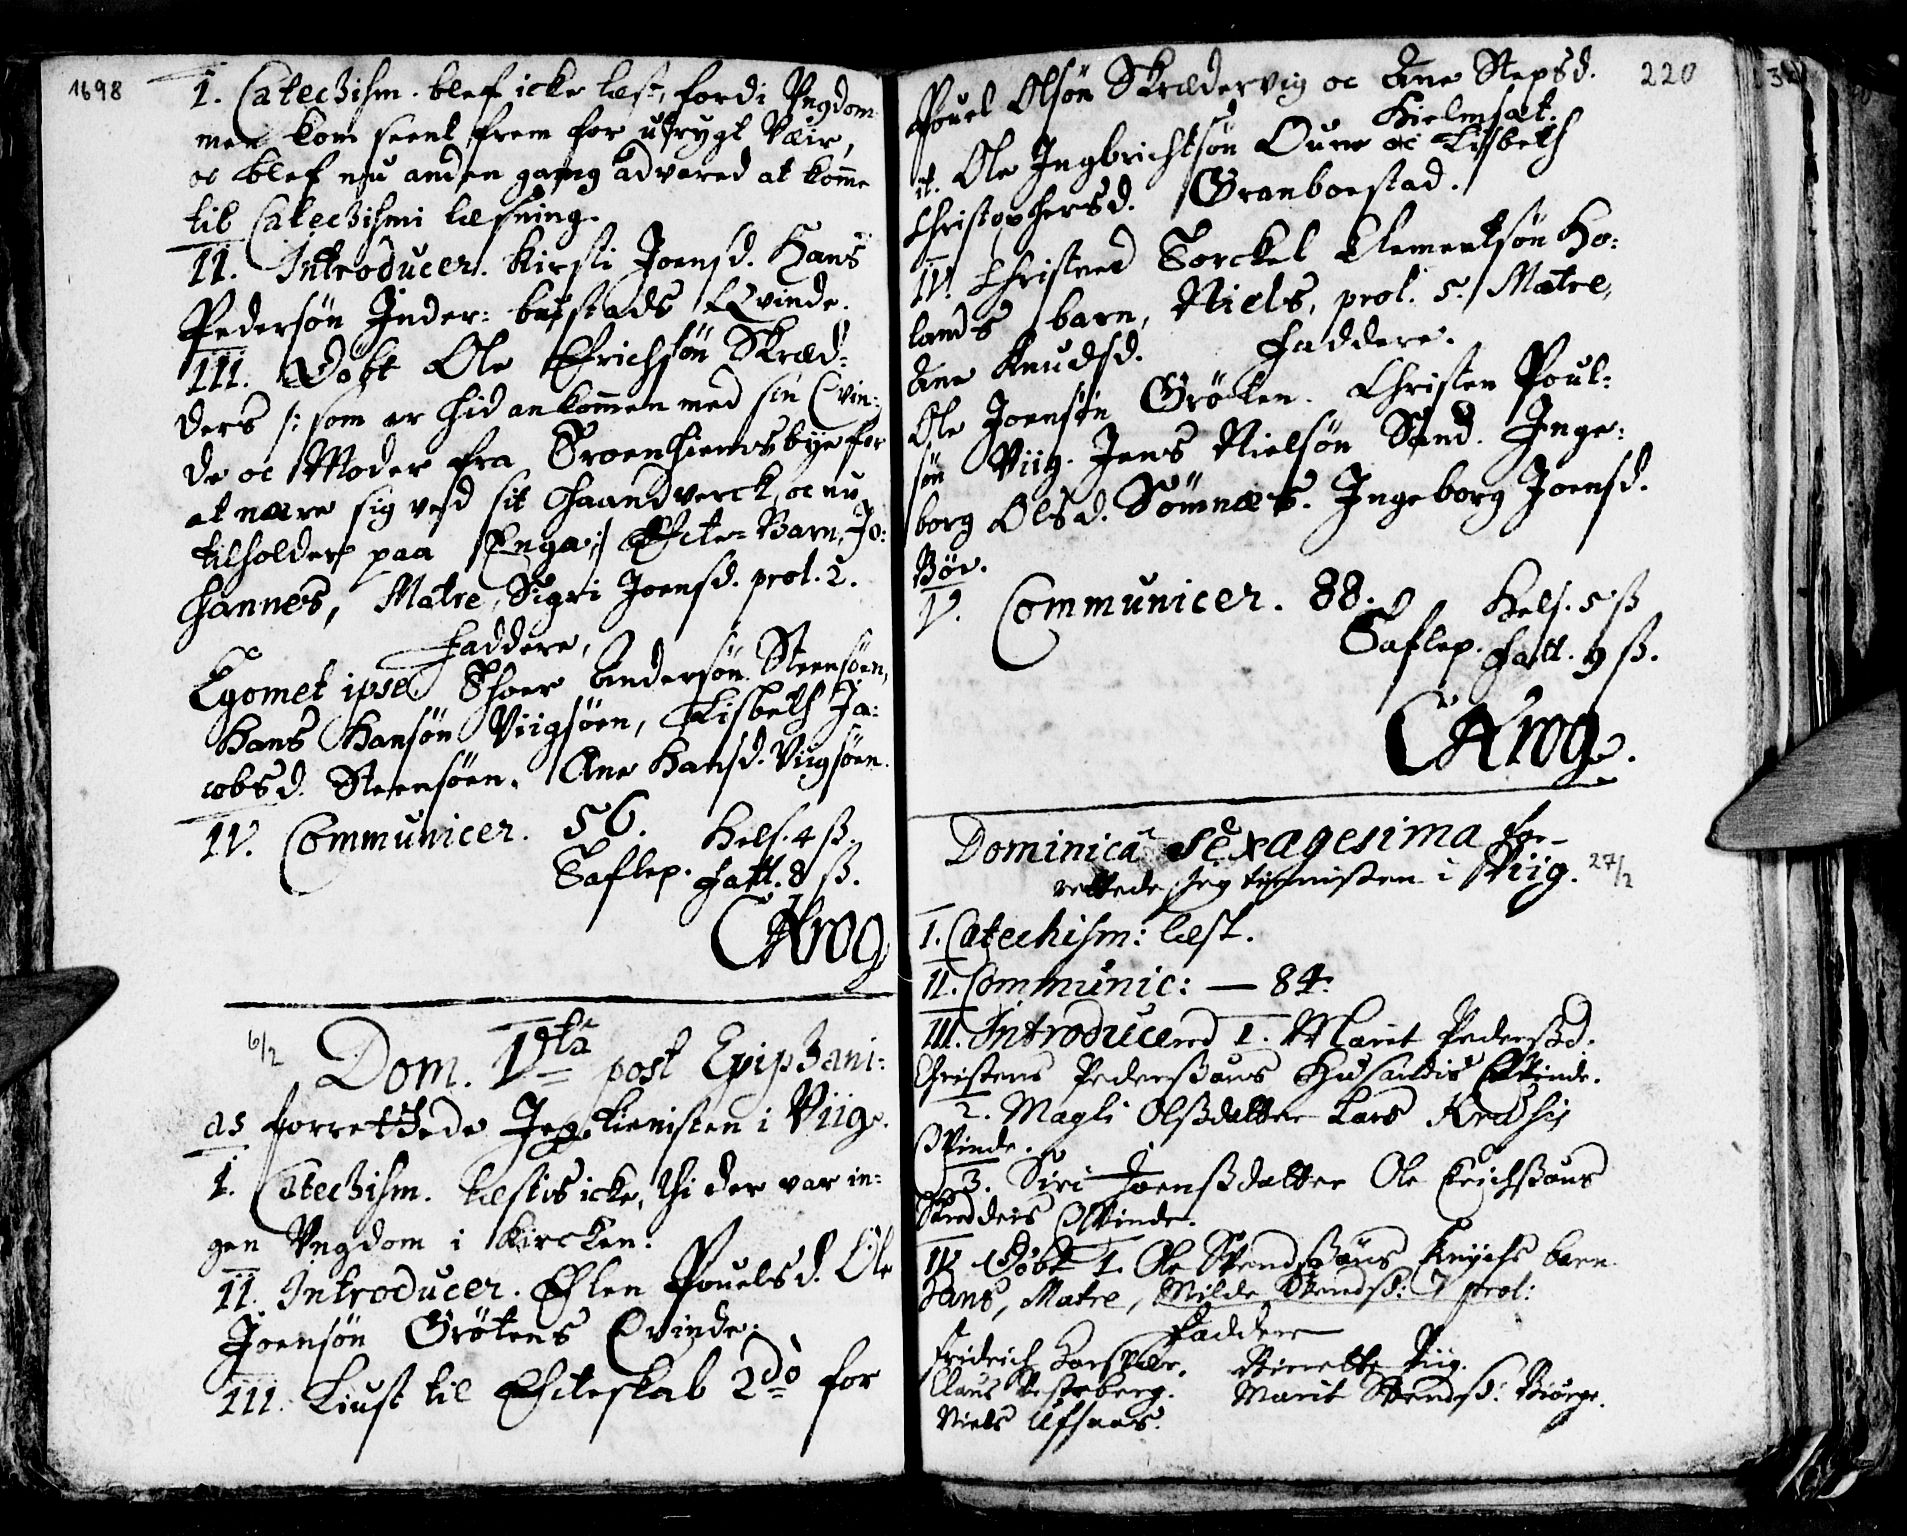 1698
I. Catechism. blef icke læst, fordi Ungdom-
men kom seent frem for utrygt Væir,
oc blef nu anden gang advared at komme
til Catechismi læsning.
II. Introducer. Kirsti Joensd. Hans
Pedersøn Inder: bustads Qvinde.
III. Döbt Ole Erichsøn Skræd-
ders /: som er hid ankommen med sin Qvin-
de oc Moder fra Troenhiems bye for
at nære sig ved sit Haandverck, oc nu
tilholder paa Enga :/ Ecte-Barn, Jo-
hannes, Matre, Sigri Joensd. prol. 2.
Faddere,
Egomet ipse. Thoer Andersøn Steensøen,
Hans Hansøn Viigsøen, Lisbeth Ja-
cobsd. Steensøen. Ane Hansd. Viigsøen.
IV. Communicer. 56. Hels. 4 ß.
Taflep. Fatt. 8 ß.
CKrog
6/2 Dom. Vta post Epiphani-
as forrettede Jeg tienisten i Viig.
I. Catechism. læstis icke, thi der var in-
gen Ungdom i Kircken.
II. Introducer. Ellen Pouelsd. Ole
Joensøn Grötens Qvinde.
III. Liust til Ecteskab 2do for
220
Pouel Olsøn Skreldervig oc Ane Stepsd.
Hielmsæt.
it. Ole Ingbrichtsøn Oune oc Lisbeth
Christophersd. Granboestad.
IV. Christned Torckel Clementsøn Ho-
lands barn, Niels, prol. 5. Matre,
Ane Knudsd. Faddere.
Ole Joensøn Gröten. Christen Poul-
søn Viig. Jens Nielsøn Sand. Inge-
borg Olsd. Sömnæs. Ingeborg Joensd.
Böe.
V. Communicer. 88. Hels. 5 ß
Taflep. Fatt. 9 ß.
CKrog.
Dominica Sexagesima for-
rettede Jeg tienisten i Viig. 27/2
I. Catechism: læst.
II. Communic: — 84.
III. Introducered 1. Marit Pederßd.
Christens Pederßøns Qvinde.
2. Magli Olßdatter Lars
Qvinde.
3. Siri Joenßdatter Ole Erichßøns
Skredders Qvinde.
IV. Döbt 1. Ole Svendßøns barn
Hans, Matre, Milde Svendß: 7 prol:
Faddere
Fridrich Birrette Viig.
Claus Vesterberg. Marit Svendß:
Niels